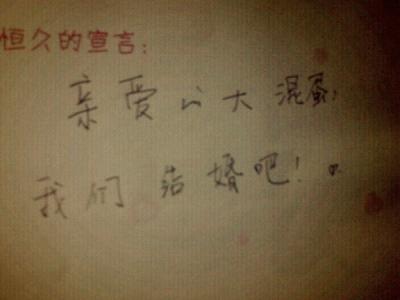 恒久的宣言：
亲爱的大混蛋，
我们结婚吧！